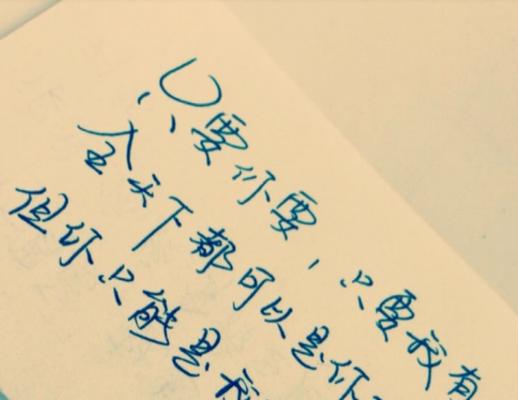 只要你要,只要我有
全天下都可以是你
但你只能是我